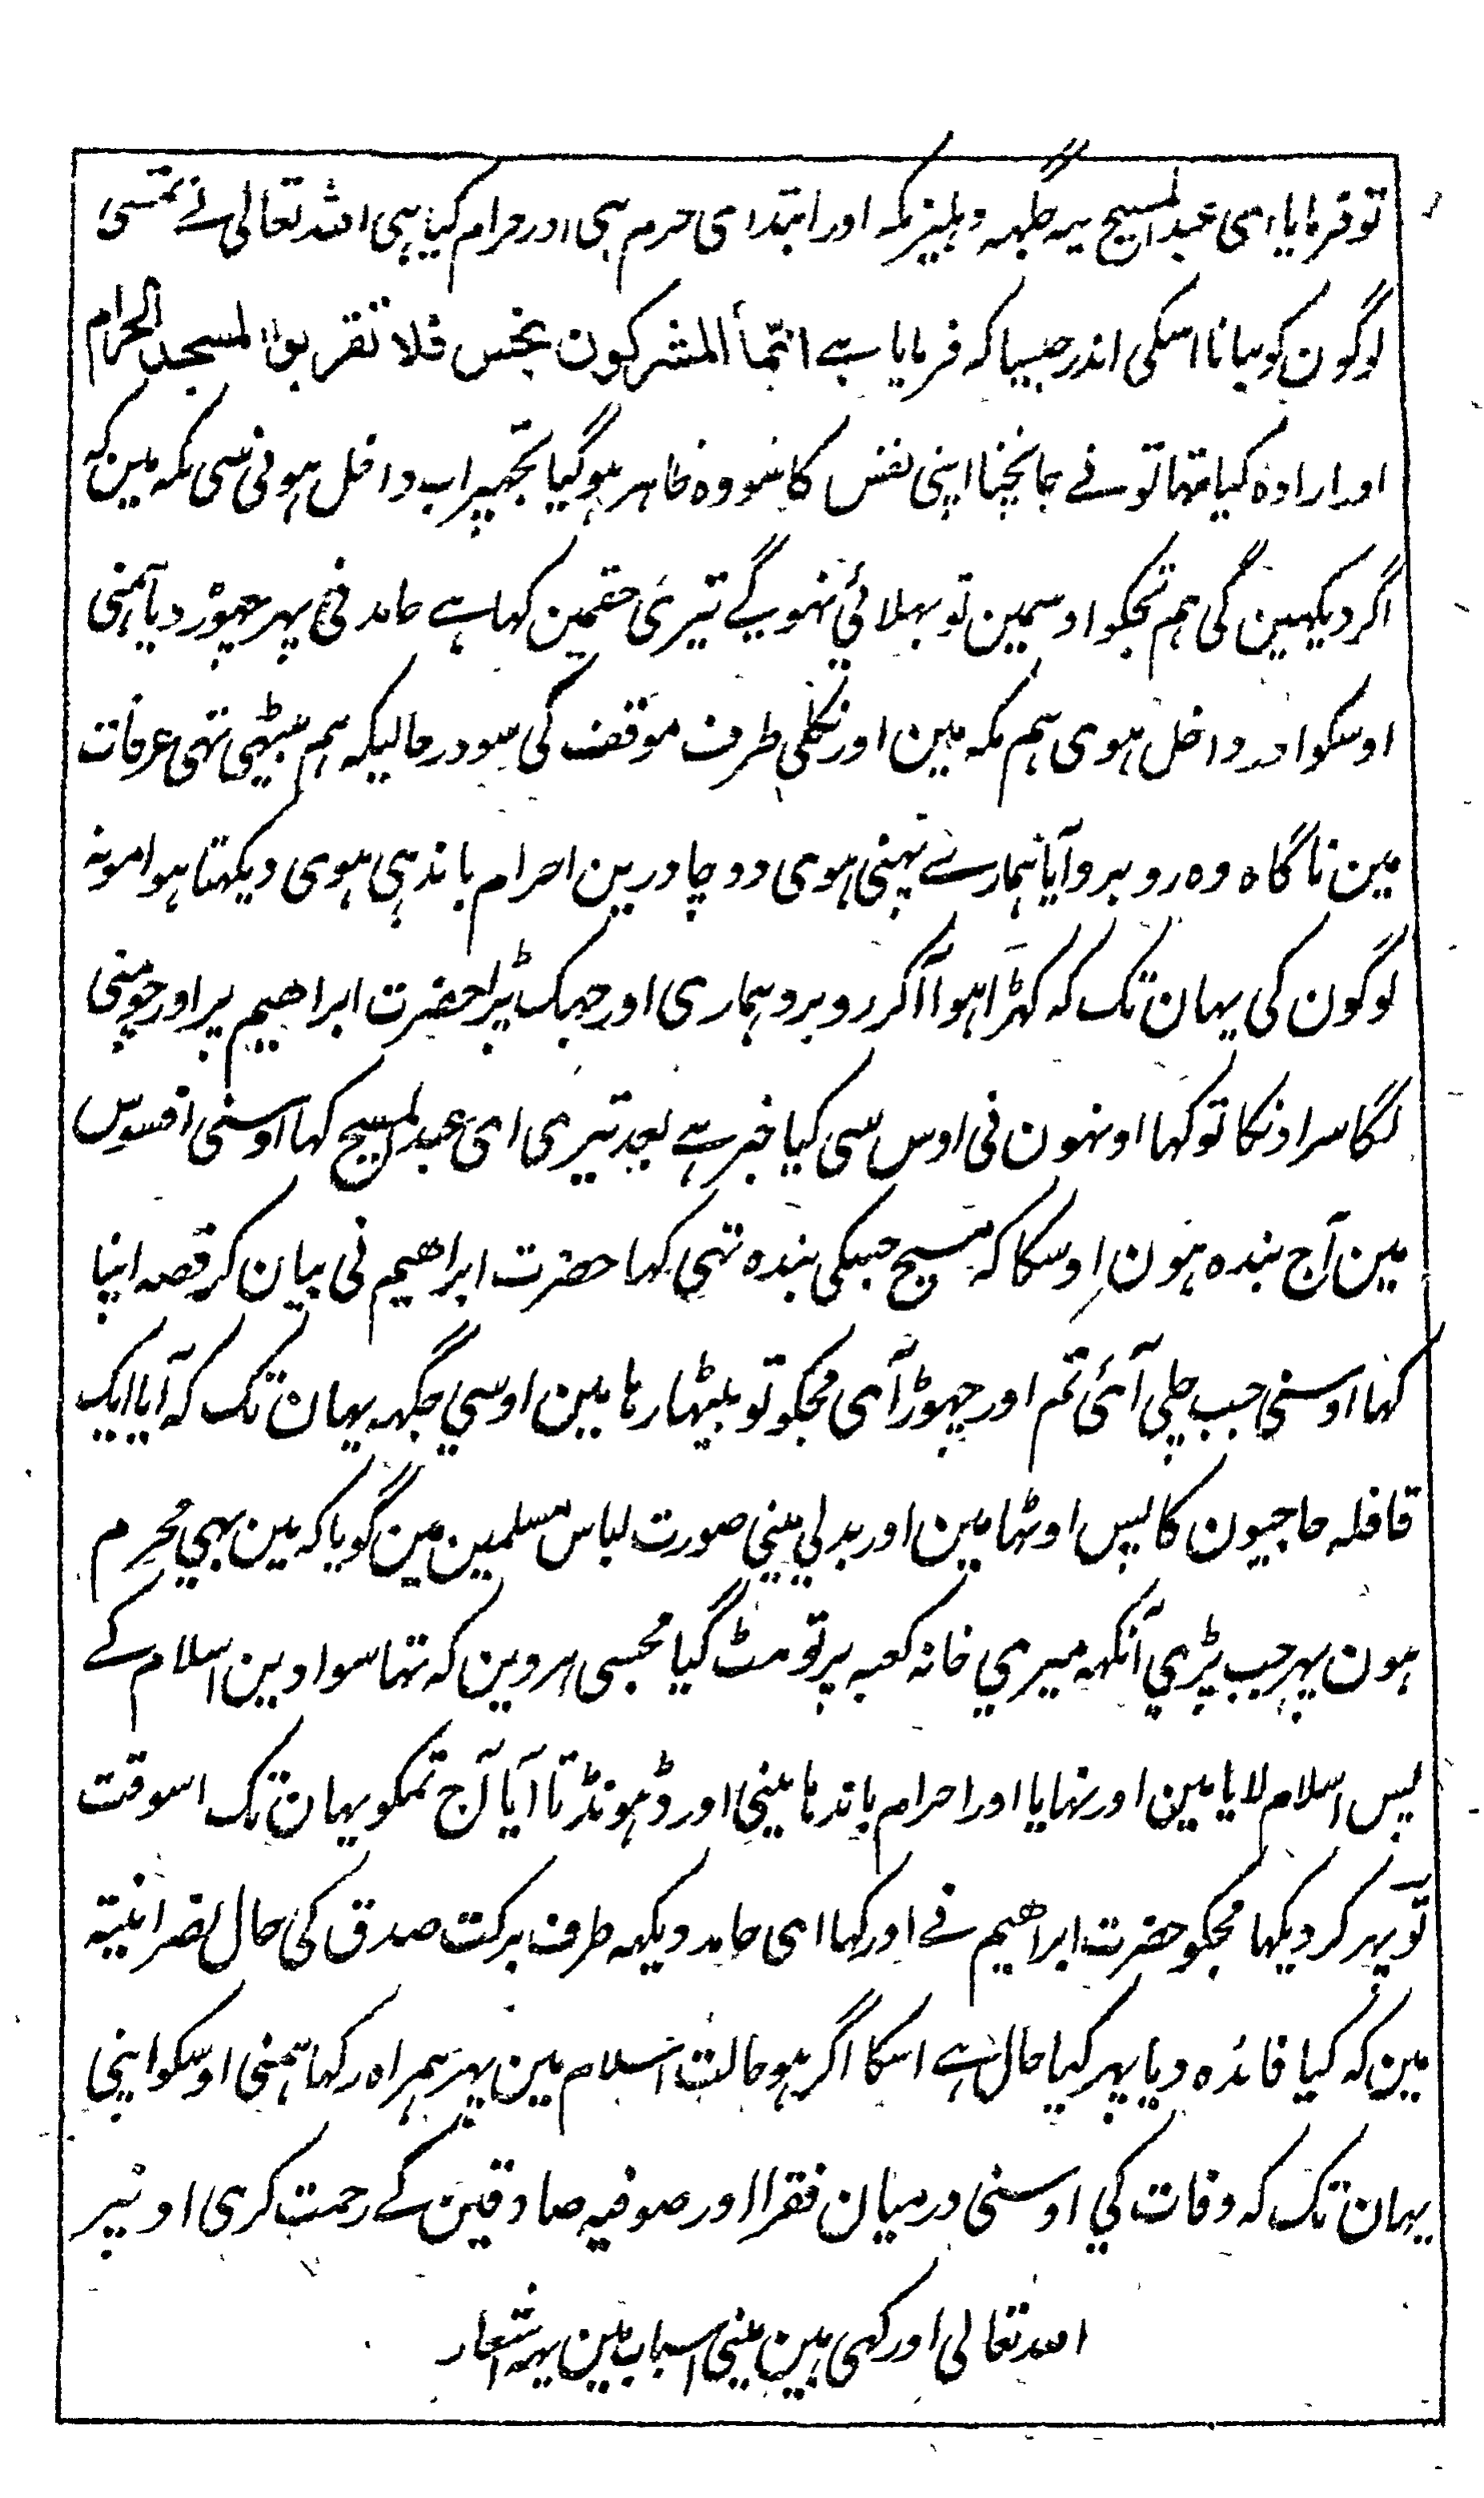 تو فرمایا ای عبدالمسیح یہ جگہہ دہلیز مکہ اور ابتدای حرم ہی اور حرام کیا ہی اللہ تعالی نے تمسی
لوگون کو جانا اسکی اندر جیسا کہ فرمایا ہے انّما المشرکون نجس فلا تقربوا المسجد الحرام
اور ارادہ کیا تہا تو نے جانچنا اپنی نفس کا سو وہ ظاہر ہو گیا تجہپر اب داخل ہونی سی مکہ مین کہ
اگر دیکہین گی ہم تجکو اوسمین تو بہلائی نہوگی تیری حقمین کہا ہے حامد نی پہر چہوڑ دیا ہمنی
اوسکو اور داخل ہوی ہم مکہ مین اور نکلی طرف موقف کی سو درحالیکہ ہم بیٹہی تہی عرفات
مین ناگاہ وہ روبرو آیا ہمارے پہنی ہوی دو چادرین احرام باندہی ہوی دیکہتا ہوا مونہ
لوگون کی یہان تک کہ کہڑا ہوا آکر روبرو ہماری اور جہک پڑا حضرت ابراہیم پر اور چومنی
لگا سر اونکا تو کہا اونہون نی اوس سی کیا خبر ہے بعد تیری ای عبدالمسیح کہا اوسنی افسوس
مین آج بندہ ہون اوسکا کہ مسیح جسکی بندہ تہی کہا حضرت ابراہیم نی بیان کر قصہ اپنا
کہا اوسنی جب چلی آئی تم اور چہوڑ آی مجکو تو بیٹہا رہا مین اوسی جگہہ یہان تک کہ آیا ایک
قافلہ حاجیون کا پس اوٹہا مین اور بدلی مینی صورت لباس مسلمین مین گویا کہ مین بہی محرم
ہون پہر جب پڑی آنکہہ میری خانہ کعبہ پر تو مٹ گیا مجسی ہر دین کہ تہا سوا دین اسلام کے
پس اسلام لایا مین اور نہایا اور احرام باندہا مینی اور ڈہونڈتا آیا آج تمکو یہان تک اسوقت
تو پہر کر دیکہا مجکو حضرت ابراہیم نے اور کہا ای حامد دیکہہ طرف برکت صدق کی حال نصرانیۃ
مین کہ کیا فائدہ دیا پہر کیا حال ہے اسکا اگر ہو حالت اسلام مین پہر ہمراہ رکہا ہمنی اوسکو اپنی
یہان تک کہ وفات کی اوسنی درمیان فقرا اور صوفیہ صادقین کے رحمت کری اوسپر
اللہ تعالی اور کہی ہین مینی اسباب مین یہہ اشعار